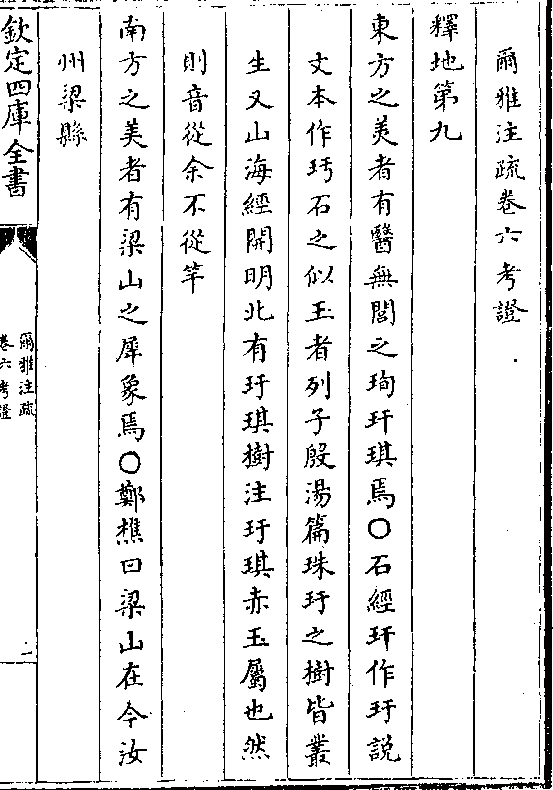 爾雅注疏卷六考證
釋地第九
東方之美者有醫無閭之珣玕琪焉○石經玕作玗說
文本作玗石之似玉者列子殷湯篇珠玗之樹皆叢
生又山海經開明北有玗琪樹注玗琪赤玉屬也然
則音從余不從竿
南方之美者有梁山之犀象焉○鄭樵曰梁山在今汝
州梁縣
欽定四庫全書
爾雅注疏
卷六考證